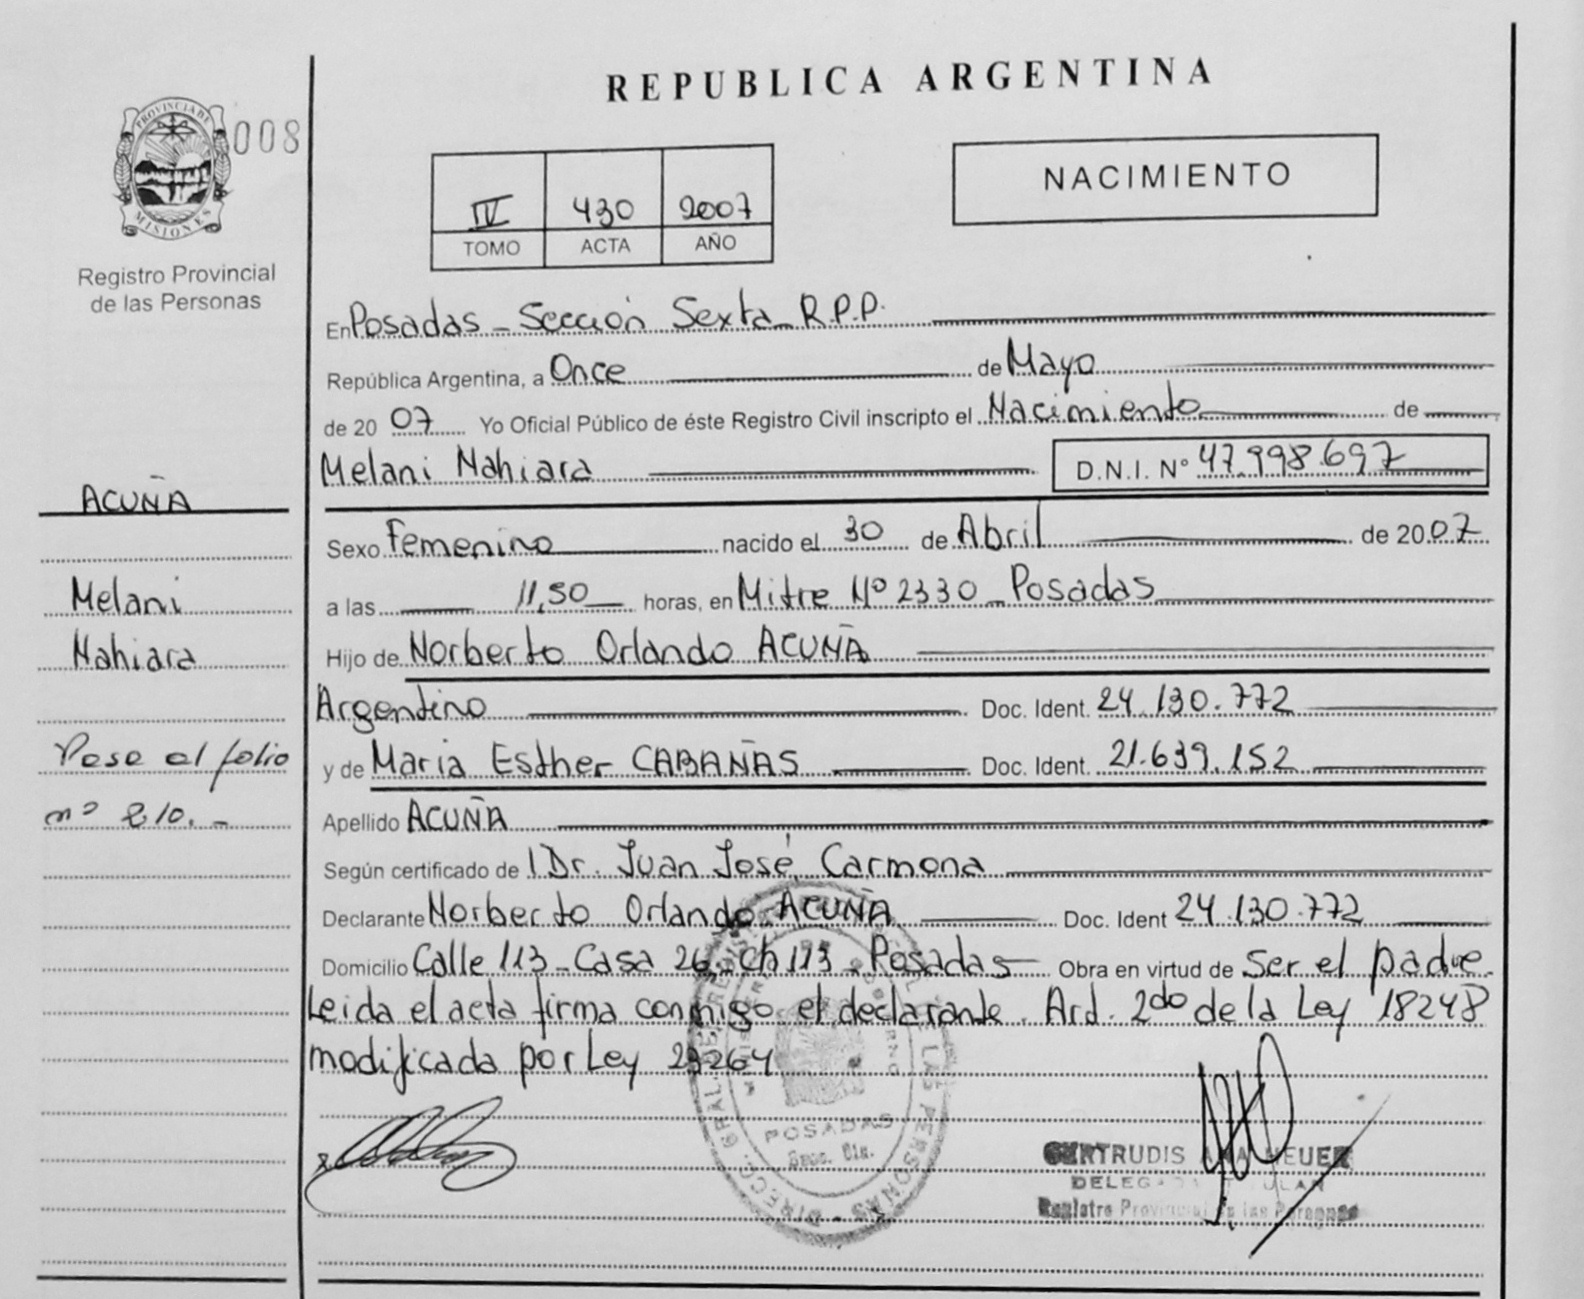 REPUBLICA ARGENTINA
PROVINCIA DE
MISIONES
008
Registro Provincial
de las Personas
IV 430 2007
TOMO ACTA AÑO
NACIMIENTO
En Posadas - Sección Sexta R.P.P.
República Argentina, a Once de Mayo
de 2007 Yo Oficial Público de éste Registro Civil inscripto el Nacimiento de
Melani Nahiara D.N.I. Nº 47.998.697
Sexo Femenino nacido el 30 de Abril de 2007
a las 11,50 horas, en Mitre Nº 2330 - Posadas
Hijo de Norberto Orlando ACUÑA
Argentino Doc. Ident. 24.130.772
y de Maria Esther CABAÑAS Doc. Ident. 21.639.152
Apellido ACUÑA
Según certificado de l Dr. Juan José Carmona
Declarante Norberto Orlando ACUÑA Doc. Ident 24.130.772
Domicilio Calle 113 - Casa 26 - Ch 113 - Posadas - Obra en virtud de Ser el padre.
Leida el acta firma conmigo el declarante. Art. 2do de la Ley 18248
modificada por Ley 23264
ACUÑA
Melani
Nahiara
Pase al folio
nº 210. -
DIRECC. GRAL. DE LAS PERSONAS
POSADAS
GERTRUDIS ANA HEUER
DELEGADA TITULAR
Registro Provincial de las Personas